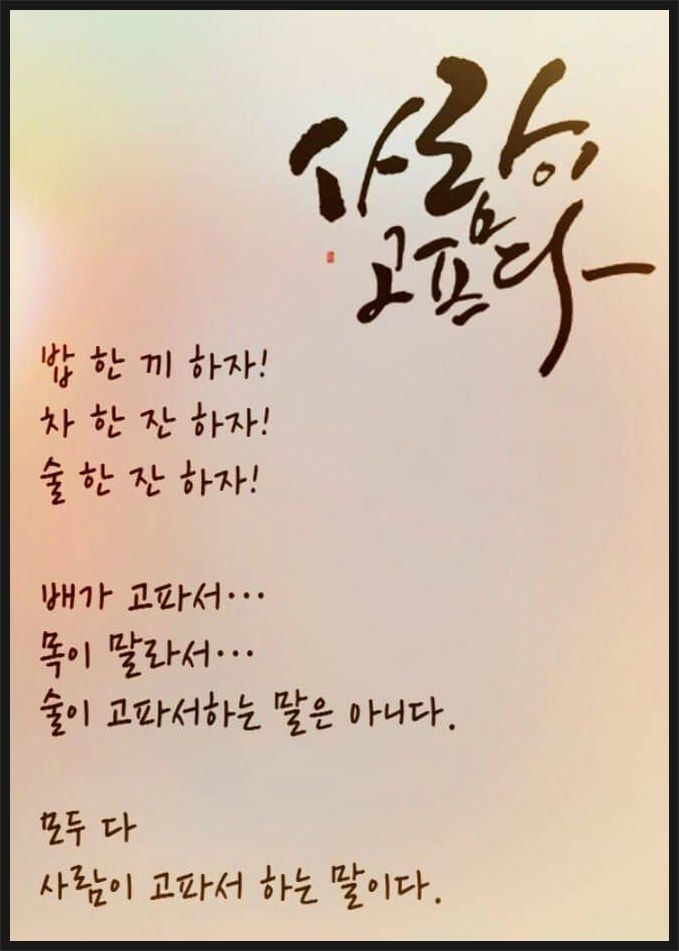 사람이
고프다
밥 한 끼 하자!
차 한 잔 하자!
술 한 잔 하자!
배가 고파서···
목이 말라서···
술이 고파서하는 말은 아니다.
모두 다
사람이 고파서 하는 말이다.